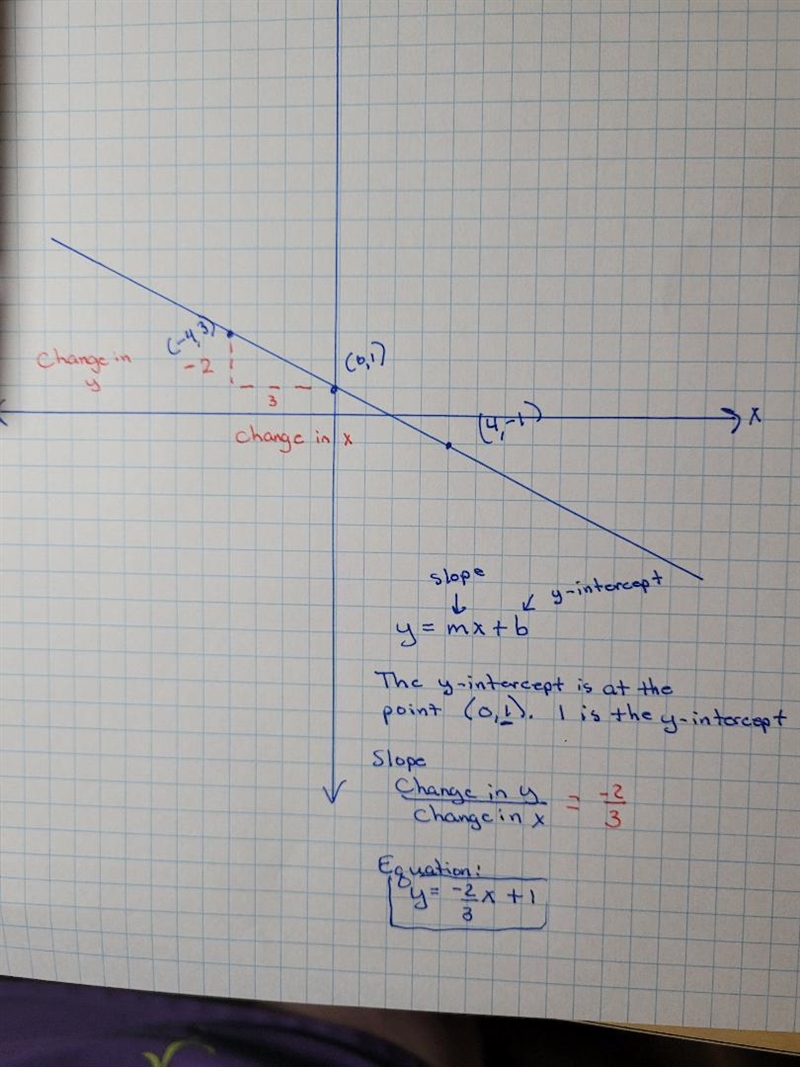 (-4,3)
Change in
y
-2
(0,1)
3
Change in x
(4,-1)
x
slope
y-intercept
y = mx + b
The y-intercept is at the
point (0,1). 1 is the y-intercept
Slope
Change in y
Change in x
= -2
3
Equation:
y = -2/3 x + 1